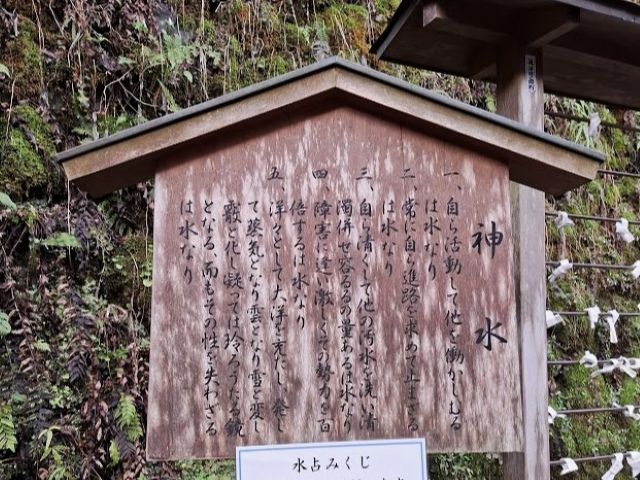 神水
一、自ら活動して他を働かしむる
は水なり
二、常に自ら進路を求めて止まざる
は水なり
三、自ら清くして他の汚水を洗い清
濁併せ容るるの量あるは水なり
四、障害に逢い激しくその勢力を百
倍するは水なり
五、洋々として大洋を充たし、発し
て蒸気となり雲となり雪と変し
霰と化し凝っては玲ろうたる鏡
となる、而もその性を失わざる
は水なり
水占みくじ